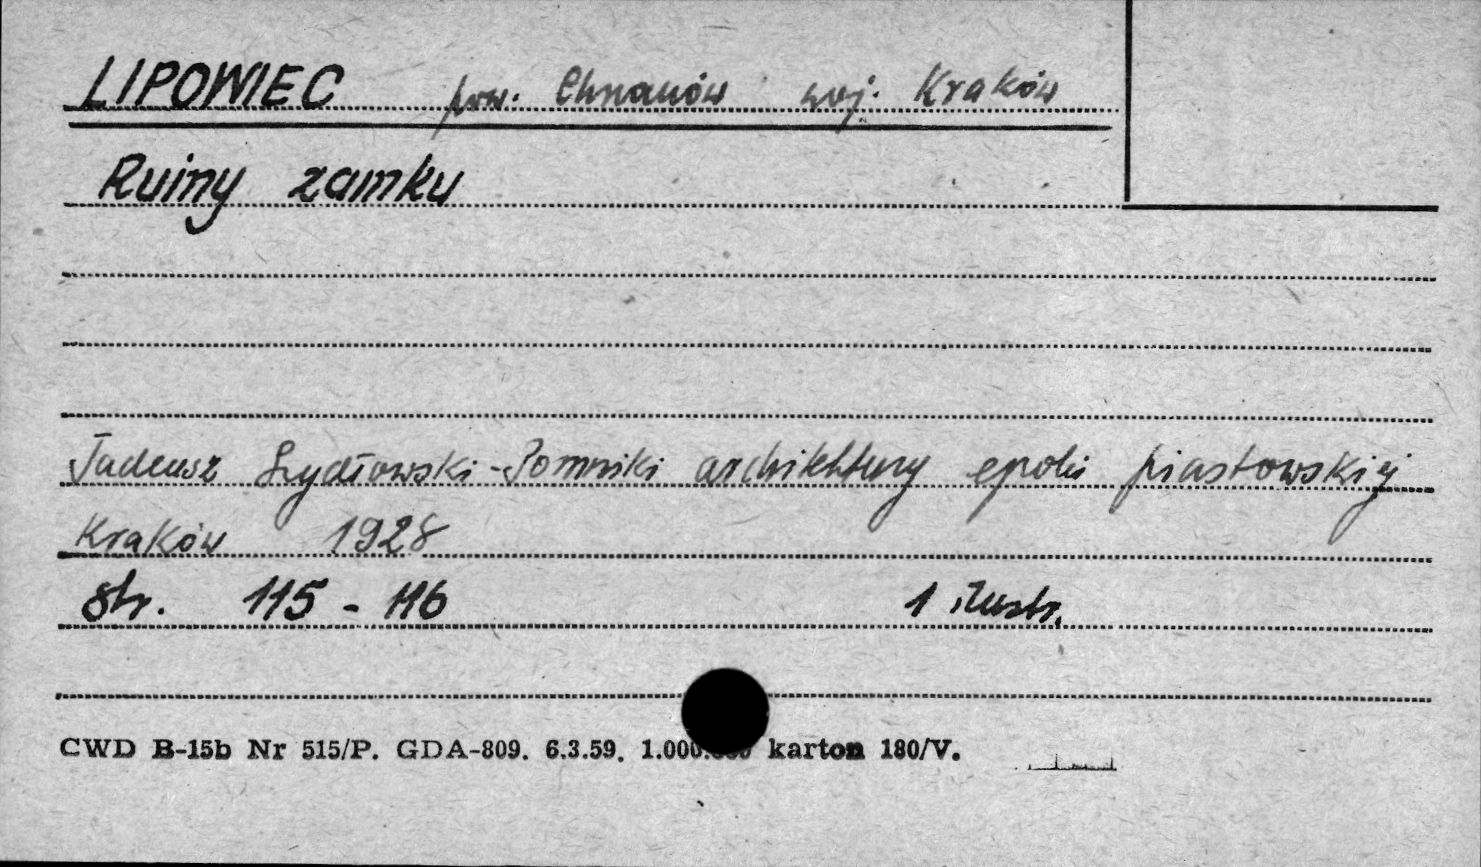 LIPOWIEC pow. Chrzanów woj. Kraków
Ruiny zamku
Tadeusz Szydłowski - Pomniki architektury epoki piastowskiej
Kraków 1928
str. 115 - 116 1 ilustr.
CWD B-15b Nr 515/P. GDA-809. 6.3.59. karton 180/V.